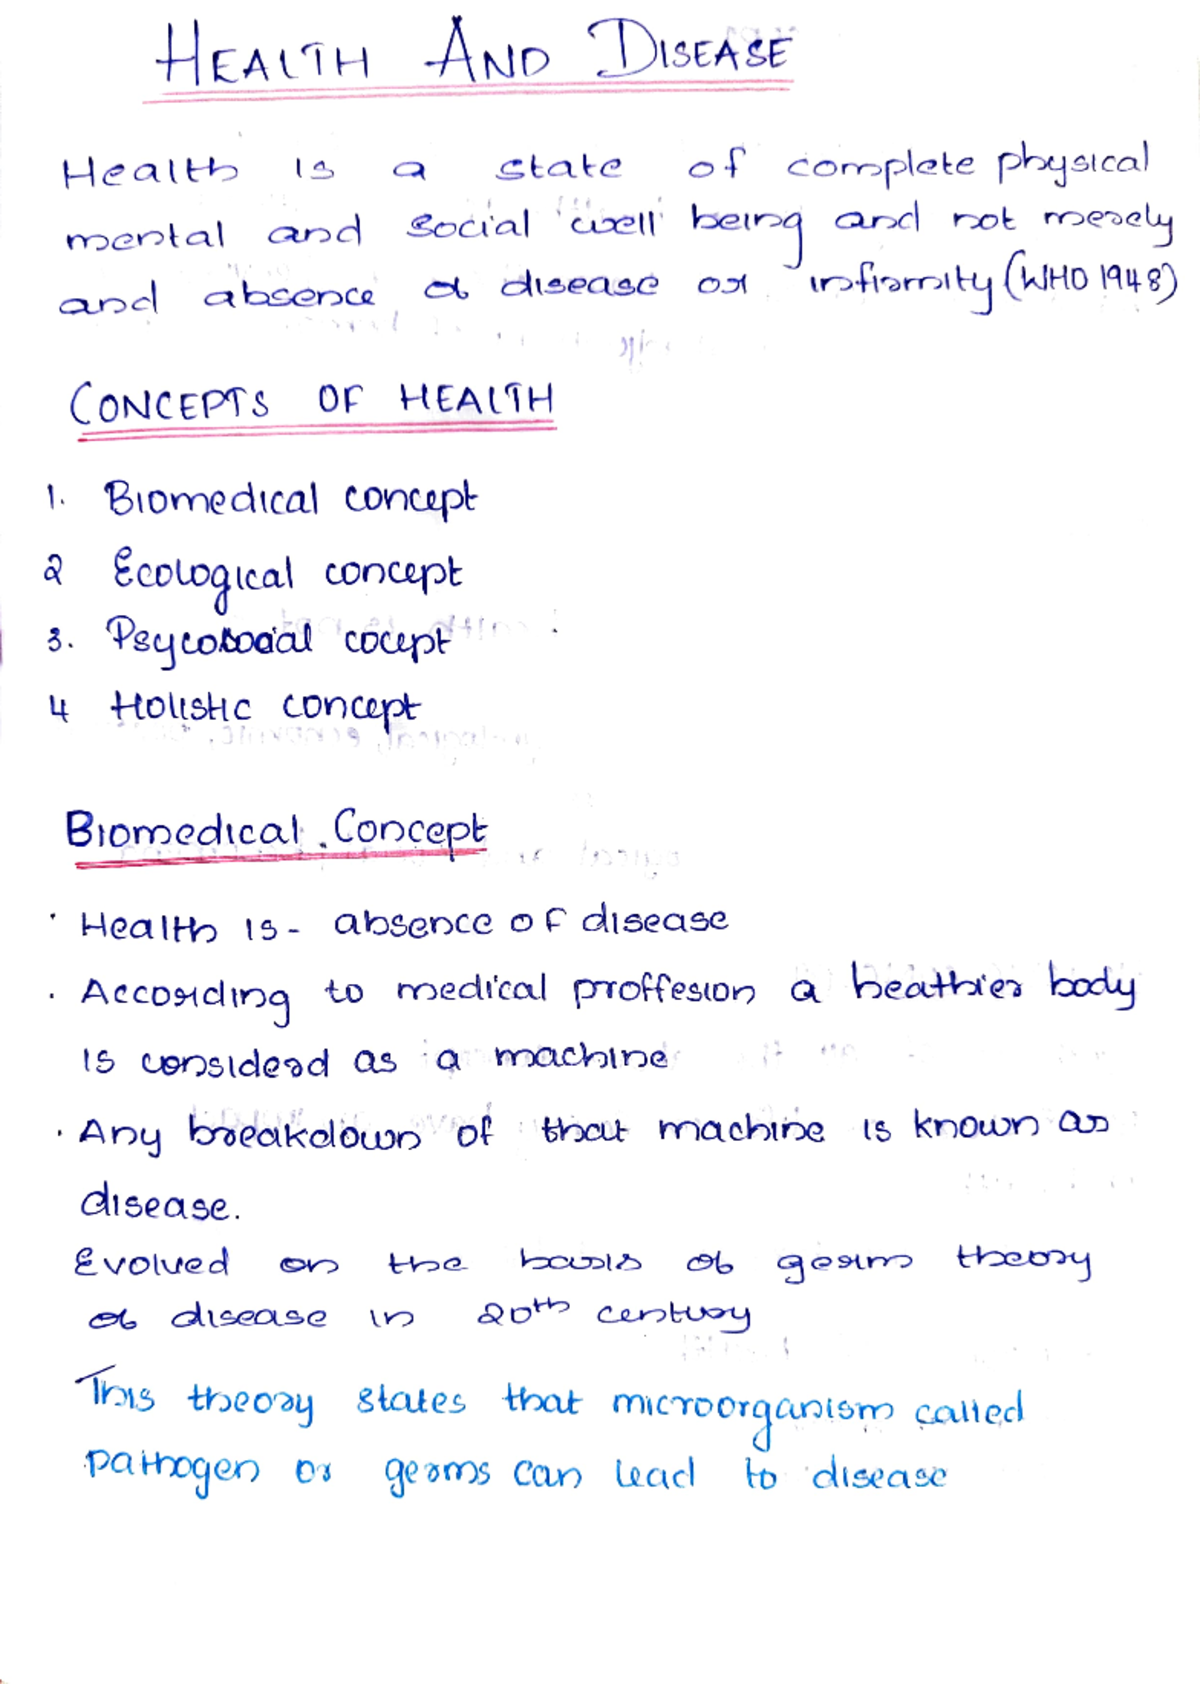 HEALTH AND DISEASE
Health is a state of complete physical
mental and social well being and not merely
and absence of disease or infirmity (WHO 1948)
CONCEPTS OF HEALTH
1. Biomedical concept
2 Ecological concept
3. Psycosocial cocept
4 Holistic concept
Biomedical Concept
· Health is - absence of disease
· According to medical proffesion a heathier body
is considerd as a machine
· Any breakdown of that machine is known as
disease.
Evolved on the basis of germ theory
of disease in 20th century
This theory states that microorganism called
pathogen or germs can lead to disease